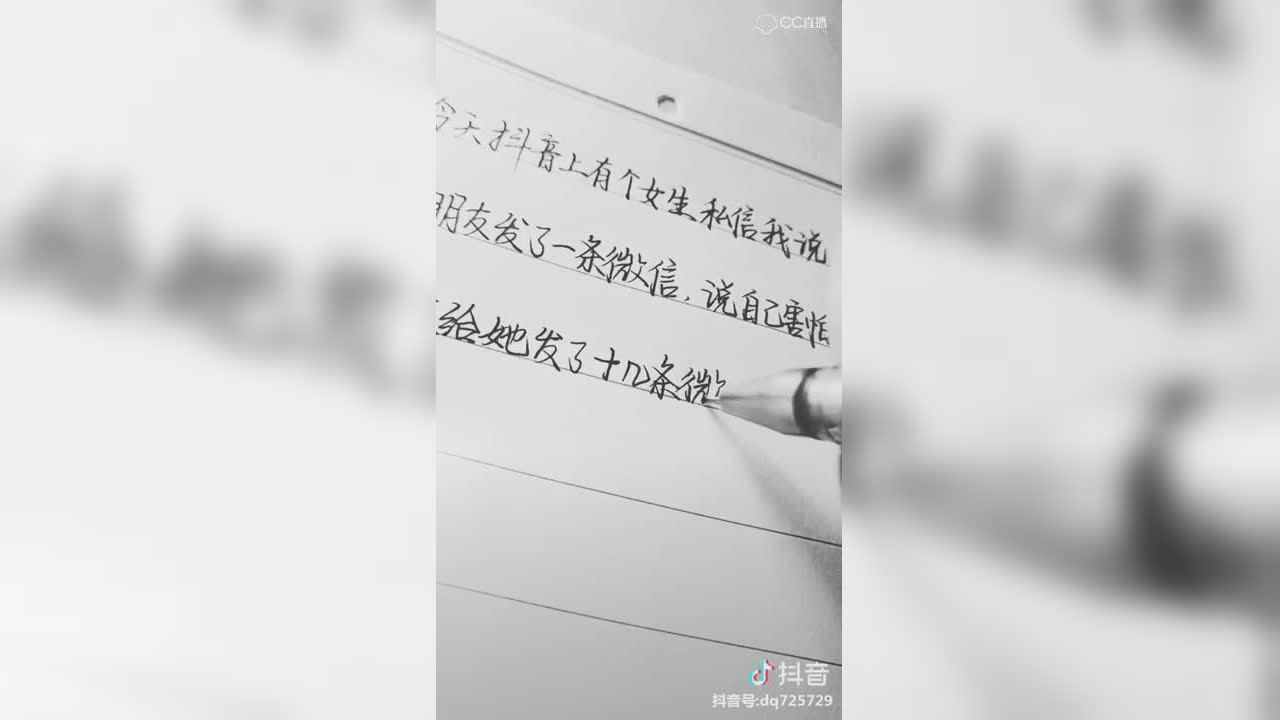 CC直播
今天抖音上有个女生私信我说
朋友发了一条微信,说自己害怕
给她发了十几条微
抖音
抖音号:dq725729